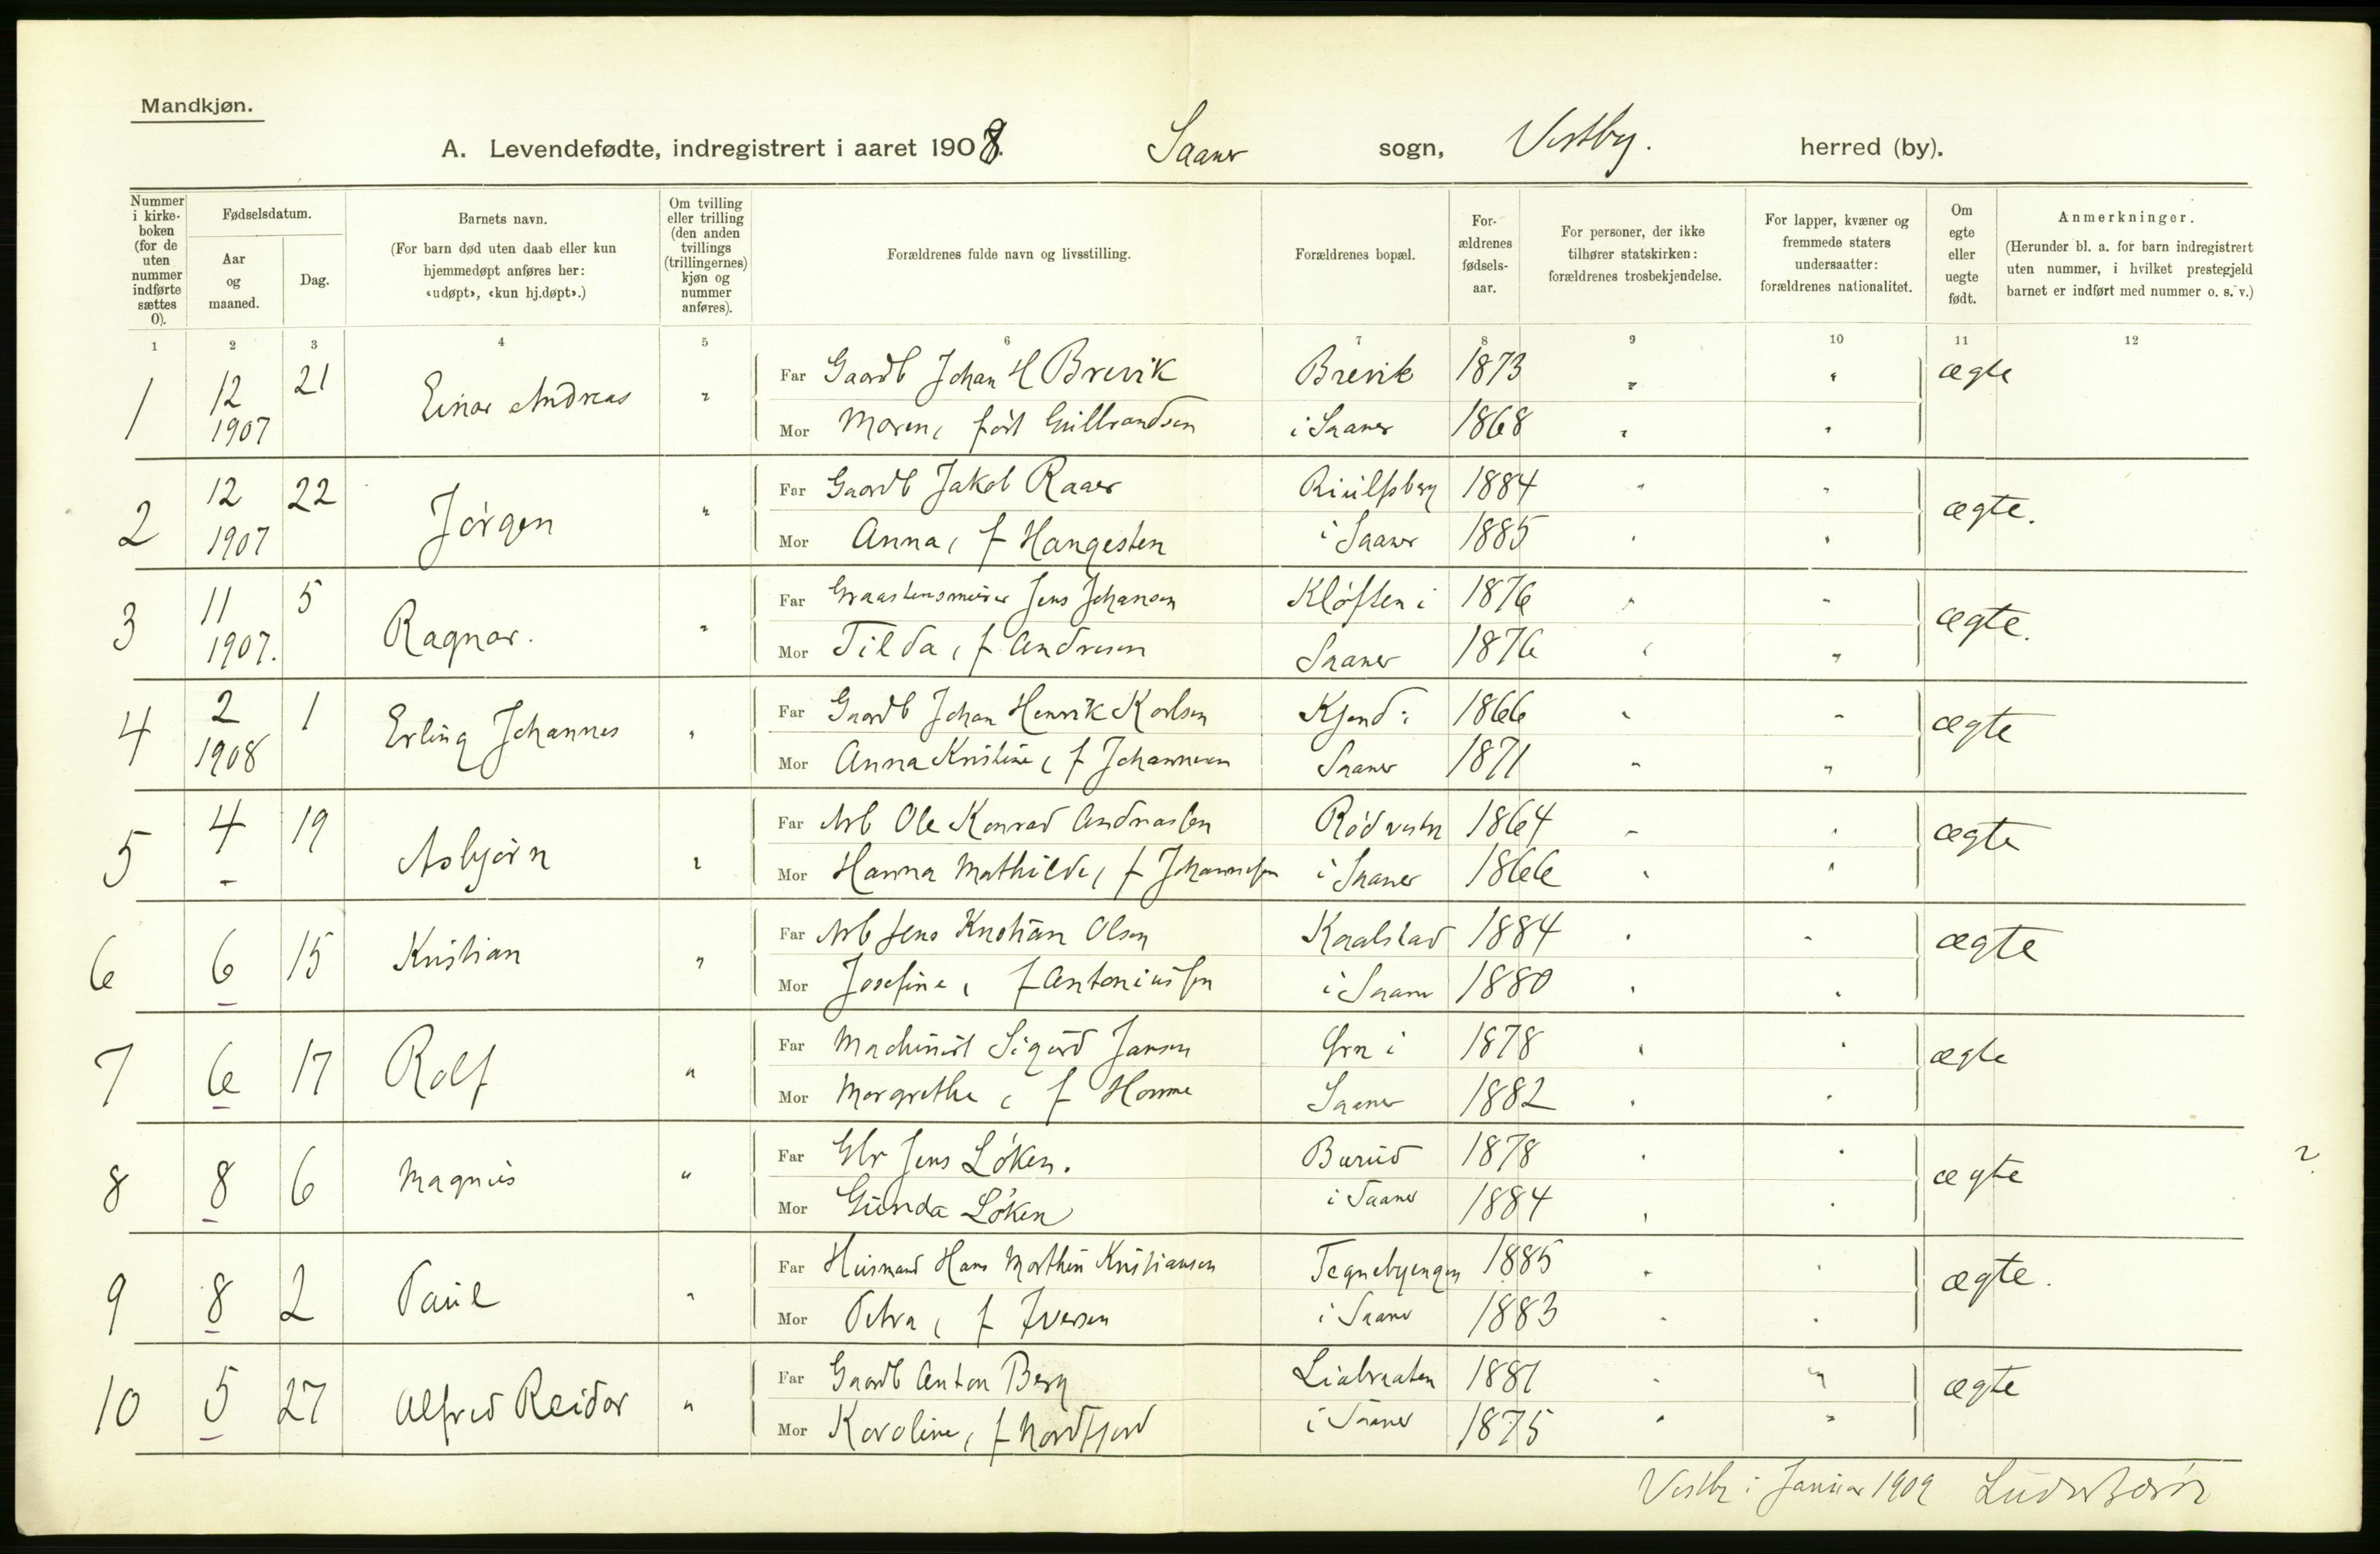 Mandkjøn.
A. Levendefødte, indregistrert i aaret 1908. Saaner sogn, Vestby. herred (by).
Nummer i kirkeboken (for de uten nummer indførte sættes 0).
Fødselsdatum.
Aar og maaned.
Dag.
Barnets navn.
(For barn død uten daab eller kun hjemmedøpt anføres her: «udøpt», «kun hj.døpt».)
Om tvilling eller trilling (den anden tvillings (trillingernes) kjøn og nummer anføres).
Forældrenes fulde navn og livsstilling.
Forældrenes bopæl.
Forældrenes fødselsaar.
For personer, der ikke tilhører statskirken: forældrenes trosbekjendelse.
For lapper, kvæner og fremmede staters undersaatter: forældrenes nationalitet.
Om egte eller uegte født.
Anmerkninger.
(Herunder bl. a. for barn indregistrert uten nummer, i hvilket prestegjeld barnet er indført med nummer o. s. v.)
1 2 3 4 5 6 7 8 9 10 11 12
1 12 21 Einar Andreas " Far Gaardb Johan H Brevik Brevik 1873 " " ægte
1907 Mor Maren, født Gulbrandsen i Saaner 1868 " "
2 12 22 Jørgen " Far Gaardb Jakob Raaer 1884 " " ægte.
1907 Mor Anna, f Hangesten i Saaner 1885 " "
3 11 5 Ragnar. " Far Graastensmurer Jens Johansen Kløften i 1876 " " ægte.
1907. Mor Tilda, f Andresen Saaner 1876 " "
4 2 1 Erling Johannes " Far Gaardb Johan Henrik Karlsen Kjend i 1866 " " ægte
1908 Mor Anna Kristine, f Johannesen Saaner 1871 " "
5 4 19 Asbjørn " Far Arb Ole Konrad Andreassen Rød vestre 1864 " " ægte
- Mor Hanna Mathilde, f Johannesen i Saaner 1866 " "
6 6 15 Kristian " Far Arb Jens Kristian Olsen Kaalstad 1884 " " ægte
- Mor Josefine, f Antoniussen i Saaner 1880 " "
7 6 17 Rolf " Far Machinist Sigurd Jansen Grn i 1878 " " ægte
- Mor Margrethe, f Homme Saaner 1882 " "
8 8 6 Magnus " Far Gbr Jens Løken. Burud 1878 " " ægte
- Mor Gunda Løken i Saaner 1884 " "
9 8 2 Paul " Far Husmand Hans Marthin Kristiansen Tegnebyengen 1885 " " ægte.
- Mor Petra, f Iversen i Saaner 1883 " "
10 5 27 Alfred Reidar " Far Gaardb Anton Berg Liabraaten 1881 " " ægte
- Mor Karoline, f Nordfjord i Saaner 1875 " "
Vestby i Januar 1909